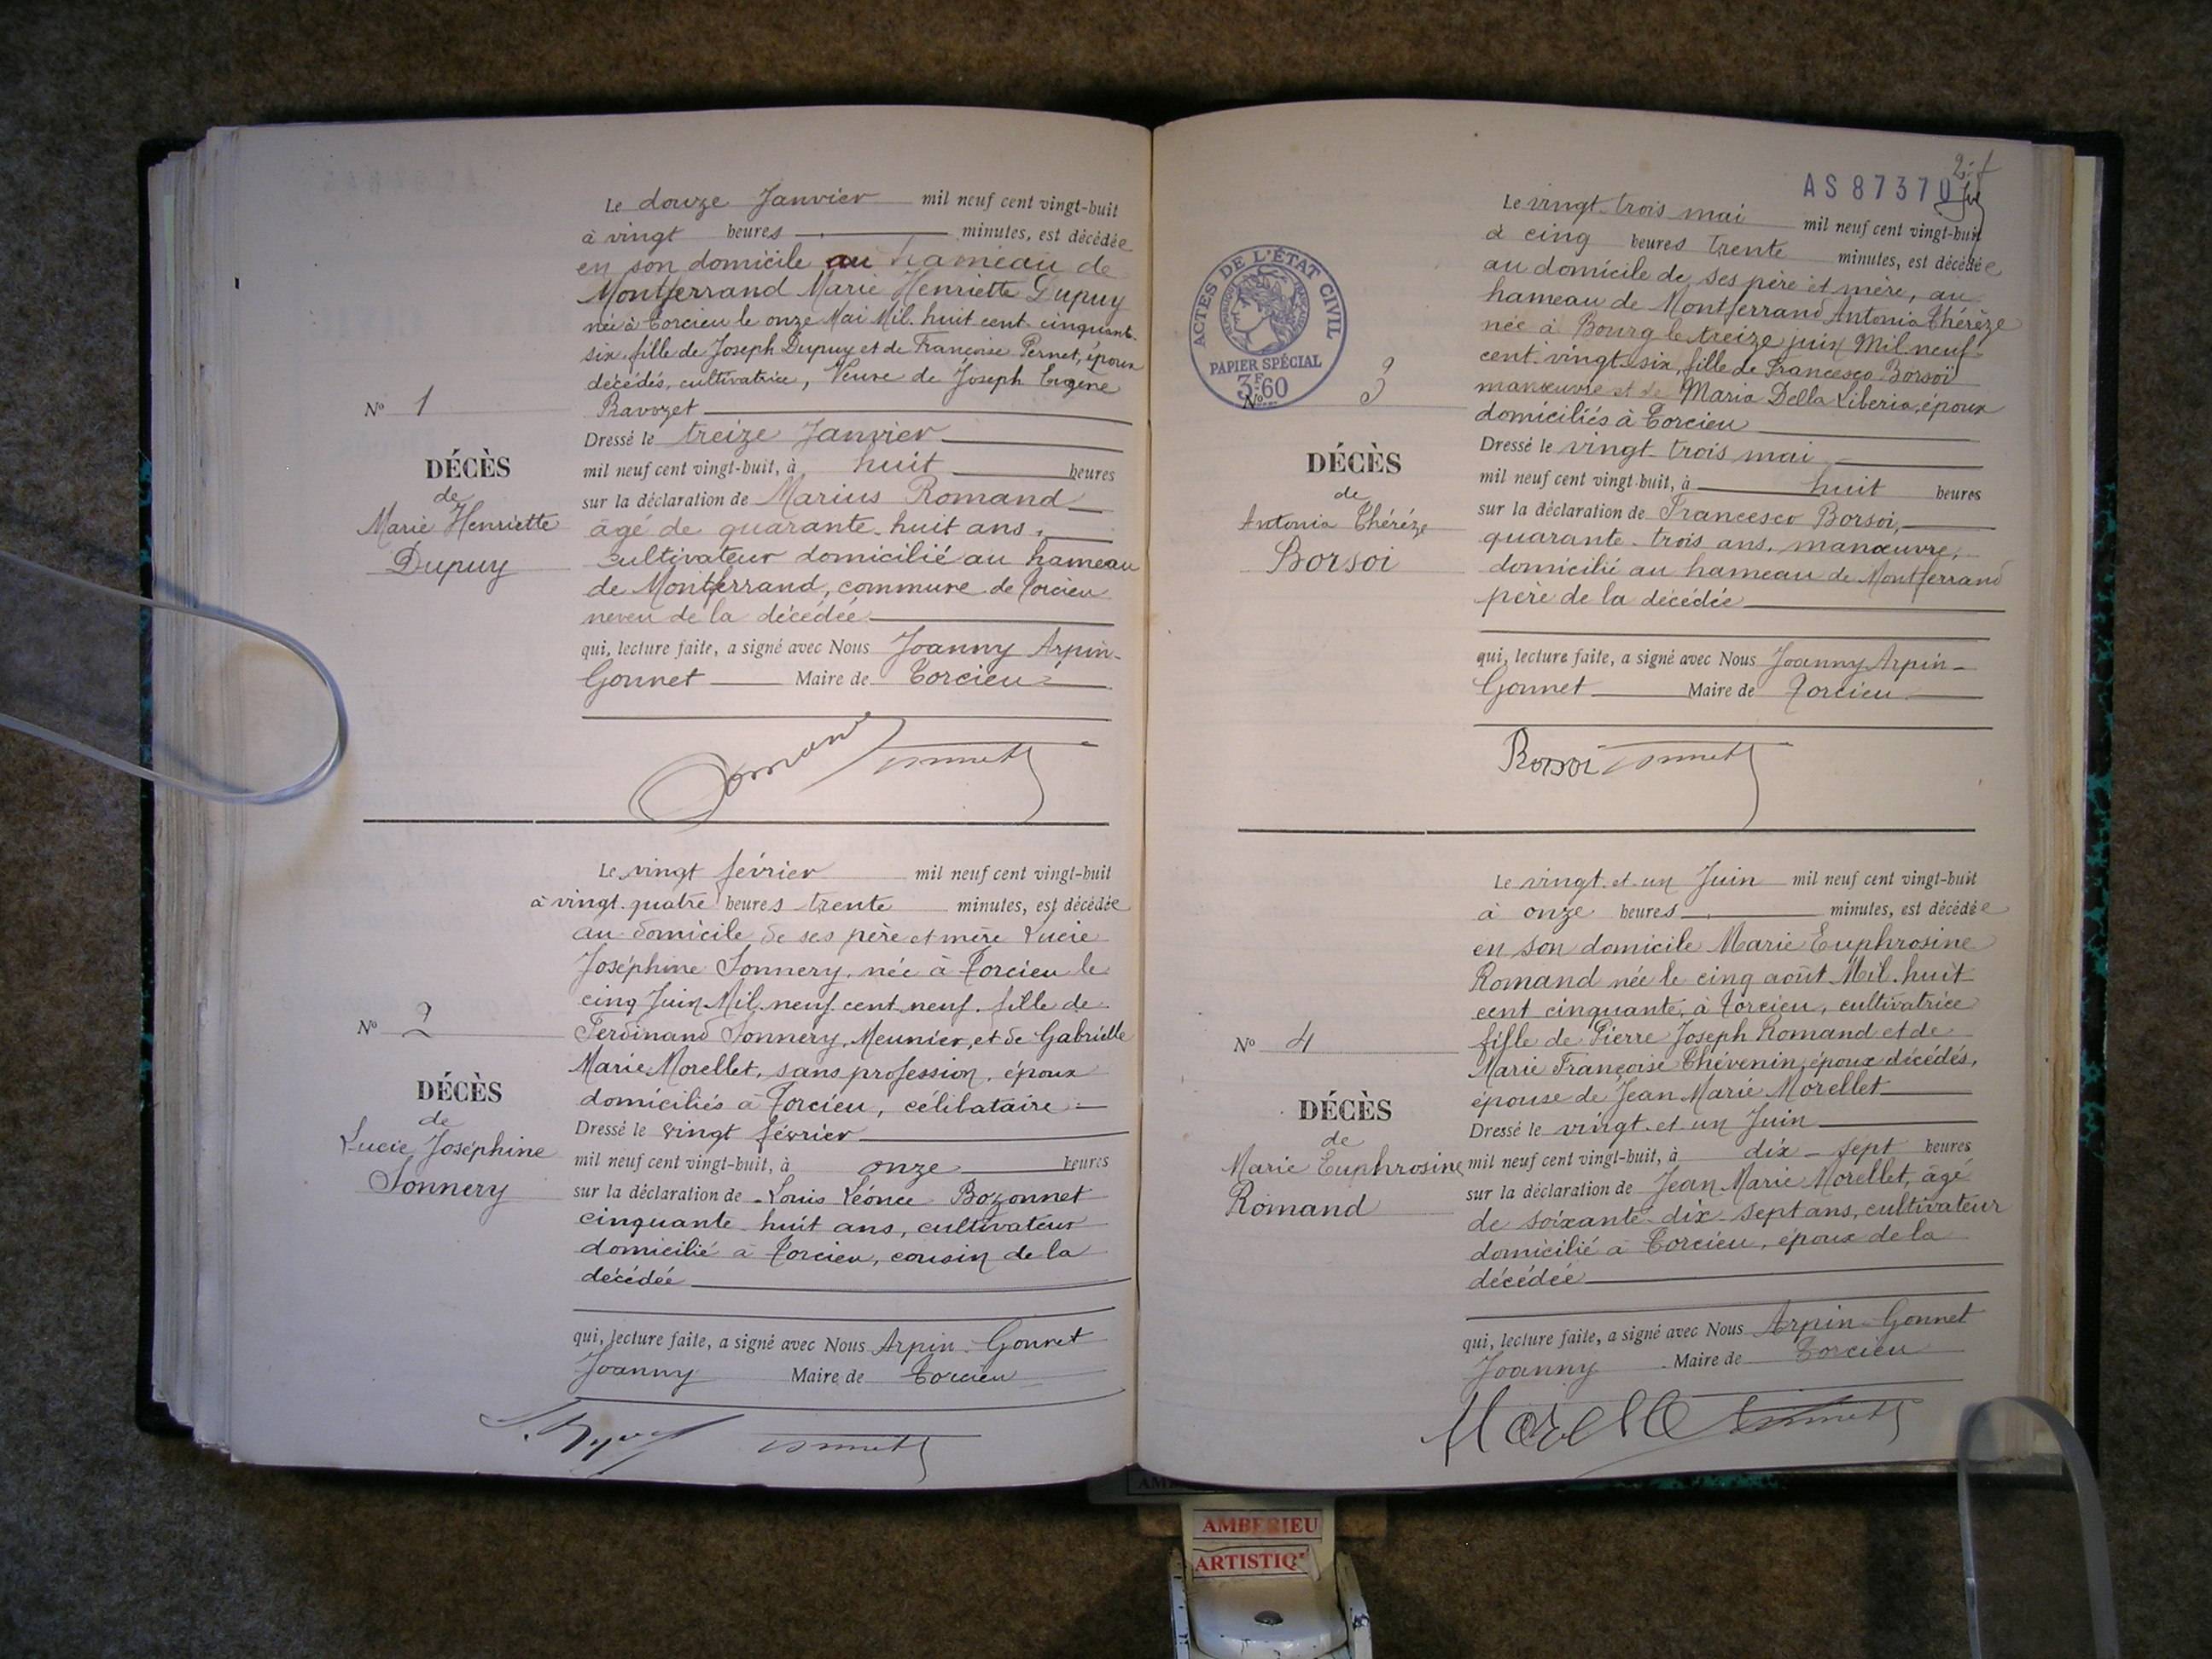 Le douze Janvier mil neuf cent vingt-huit
à vingt heures minutes, est décédée
en son domicile au hameau de
Montferrand Marie Henriette Dupuy
née à Torcieu le onze Mai Mil. huit cent. cinquante-
six, fille de Joseph Dupuy et de Françoise Pernet, époux
décédés, cultivatrice, Veuve de Joseph Eugène
Ravozet
Nº 1
DÉCÈS
de
Marie Henriette
Dupuy
Dressé le treize Janvier
mil neuf cent vingt-huit, à huit heures
sur la déclaration de Marius Romand
âgé de quarante-huit ans,
cultivateur domicilié au hameau
de Montferrand, commune de Torcieu
neveu de la décédée
qui, lecture faite, a signé avec Nous Joanny Arpin-
Gonnet Maire de Torcieu
Romand Gonnet
Le vingt février mil neuf cent vingt-huit
à vingt-quatre heures trente minutes, est décédée
au domicile de ses père et mère Lucie
Joséphine Sonnery, née à Torcieu le
cinq Juin Mil. neuf. cent neuf. fille de
Ferdinand Sonnery, Meunier, et de Gabrielle
Marie Morellet, sans profession, époux
domiciliés à Torcieu, célibataire
Nº 2
DÉCÈS
de
Lucie Joséphine
Sonnery
Dressé le vingt février
mil neuf cent vingt-huit, à onze heures
sur la déclaration de Louis Léonce Bozonnet
cinquante huit ans, cultivateur
domicilié à Torcieu, cousin de la
décédée
qui, lecture faite, a signé avec Nous Arpin-Gonnet
Joanny Maire de Torcieu
Gonnet
AS 87370
ACTES DE L'ÉTAT CIVIL
PAPIER SPÉCIAL
3F60
Le vingt-trois mai mil neuf cent vingt-huit
à cinq heures trente minutes, est décédée
au domicile de ses père et mère, au
hameau de Montferrand Antonia Thérèze
née à Bourg le treize juin Mil neuf-
cent. vingt-six, fille de Francesco Borsoï
manœuvre et de Maria Della Liberia, époux
domiciliés à Torcieu
Nº 3
DÉCÈS
de
Antonia Thérèze
Borsoi
Dressé le vingt-trois mai
mil neuf cent vingt-huit, à huit heures
sur la déclaration de Francesco Borsoi,
quarante-trois ans, manœuvre,
domicilié au hameau de Montferrand
père de la décédée
qui, lecture faite, a signé avec Nous Joanny Arpin-
Gonnet Maire de Torcieu
Borsoi Gonnet
Le vingt-et-un Juin mil neuf cent vingt-huit
à onze heures minutes, est décédée
en son domicile Marie Euphrosine
Romand née le cinq août Mil. huit
cent cinquante, à Torcieu, cultivatrice
fille de Pierre Joseph Romand et de
Marie Françoise Thévenin, époux décédés,
épouse de Jean Marie Morellet
Nº 4
DÉCÈS
de
Marie Euphrosine
Romand
Dressé le vingt-et-un Juin
mil neuf cent vingt-huit, à dix-sept heures
sur la déclaration de Jean-Marie Morellet, âgé
de soixante-dix-sept ans, cultivateur
domicilié à Torcieu, époux de la
décédée
qui, lecture faite, a signé avec Nous Arpin-Gonnet
Joanny Maire de Torcieu
Gonnet
AMBERIEU
ARTISTIQ